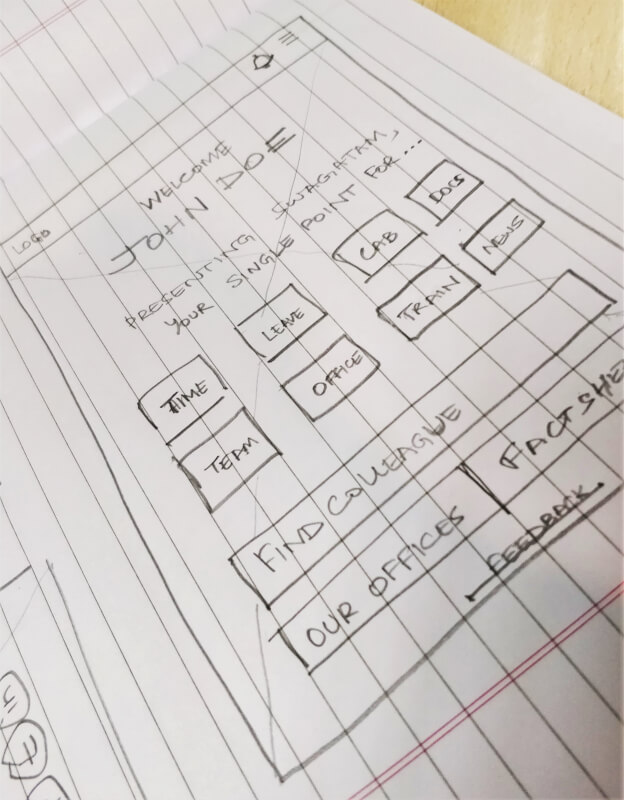 LOGO
WELCOME
JOHN DOE
PRESENTING SWAGATAM,
YOUR SINGLE POINT FOR...
TIME LEAVE CAB DOCS
TEAM OFFICE TRAIN NEWS
FIND COLLEAGUE
OUR OFFICES FACTSHE
FEEDBACK